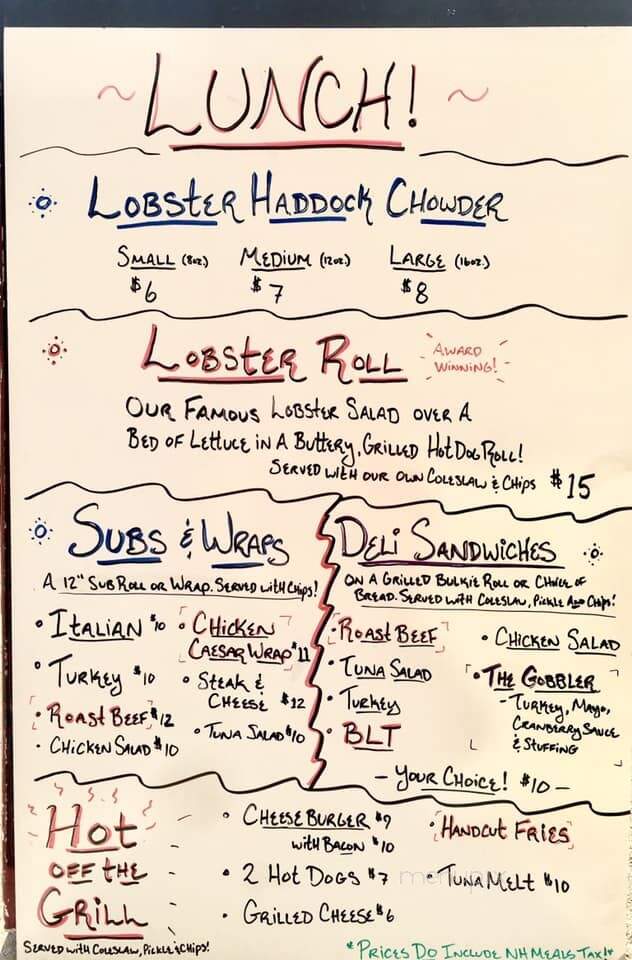 ~ LUNCH! ~
LOBSTER HADDOCK CHOWDER
SMALL (8oz.) MEDIUM (12oz.) LARGE (16oz.)
$6 $7 $8
LOBSTER ROLL
AWARD
WINNING!
OUR FAMOUS LOBSTER SALAD OVER A
BED OF LETTUCE IN A BUTTERY, GRILLED HOT DOG ROLL!
SERVED WITH OUR OWN COLESLAW & CHIPS $15
SUBS & WRAPS
A 12" SUB ROLL OR WRAP. SERVED WITH CHIPS!
• ITALIAN $10
• TURKEY $10
• ROAST BEEF $12
• CHICKEN SALAD $10
• CHICKEN
CAESAR WRAP $11
• STEAK &
CHEESE $12
• TUNA SALAD $10
DELI SANDWICHES
ON A GRILLED BULKIE ROLL OR CHOICE OF
BREAD. SERVED WITH COLESLAW, PICKLE AND CHIPS!
• ROAST BEEF
• TUNA SALAD
• TURKEY
• BLT
• CHICKEN SALAD
• THE GOBBLER
- TURKEY, MAYO,
CRANBERRY SAUCE
& STUFFING
- YOUR CHOICE! $10 -
HOT
OFF THE
GRILL
SERVED WITH COLESLAW, PICKLE & CHIPS!
• CHEESEBURGER $9
WITH BACON $10
• 2 HOT DOGS $7
• GRILLED CHEESE $6
• HANDCUT FRIES
• TUNA MELT $10
*PRICES DO INCLUDE NH MEALS TAX!*